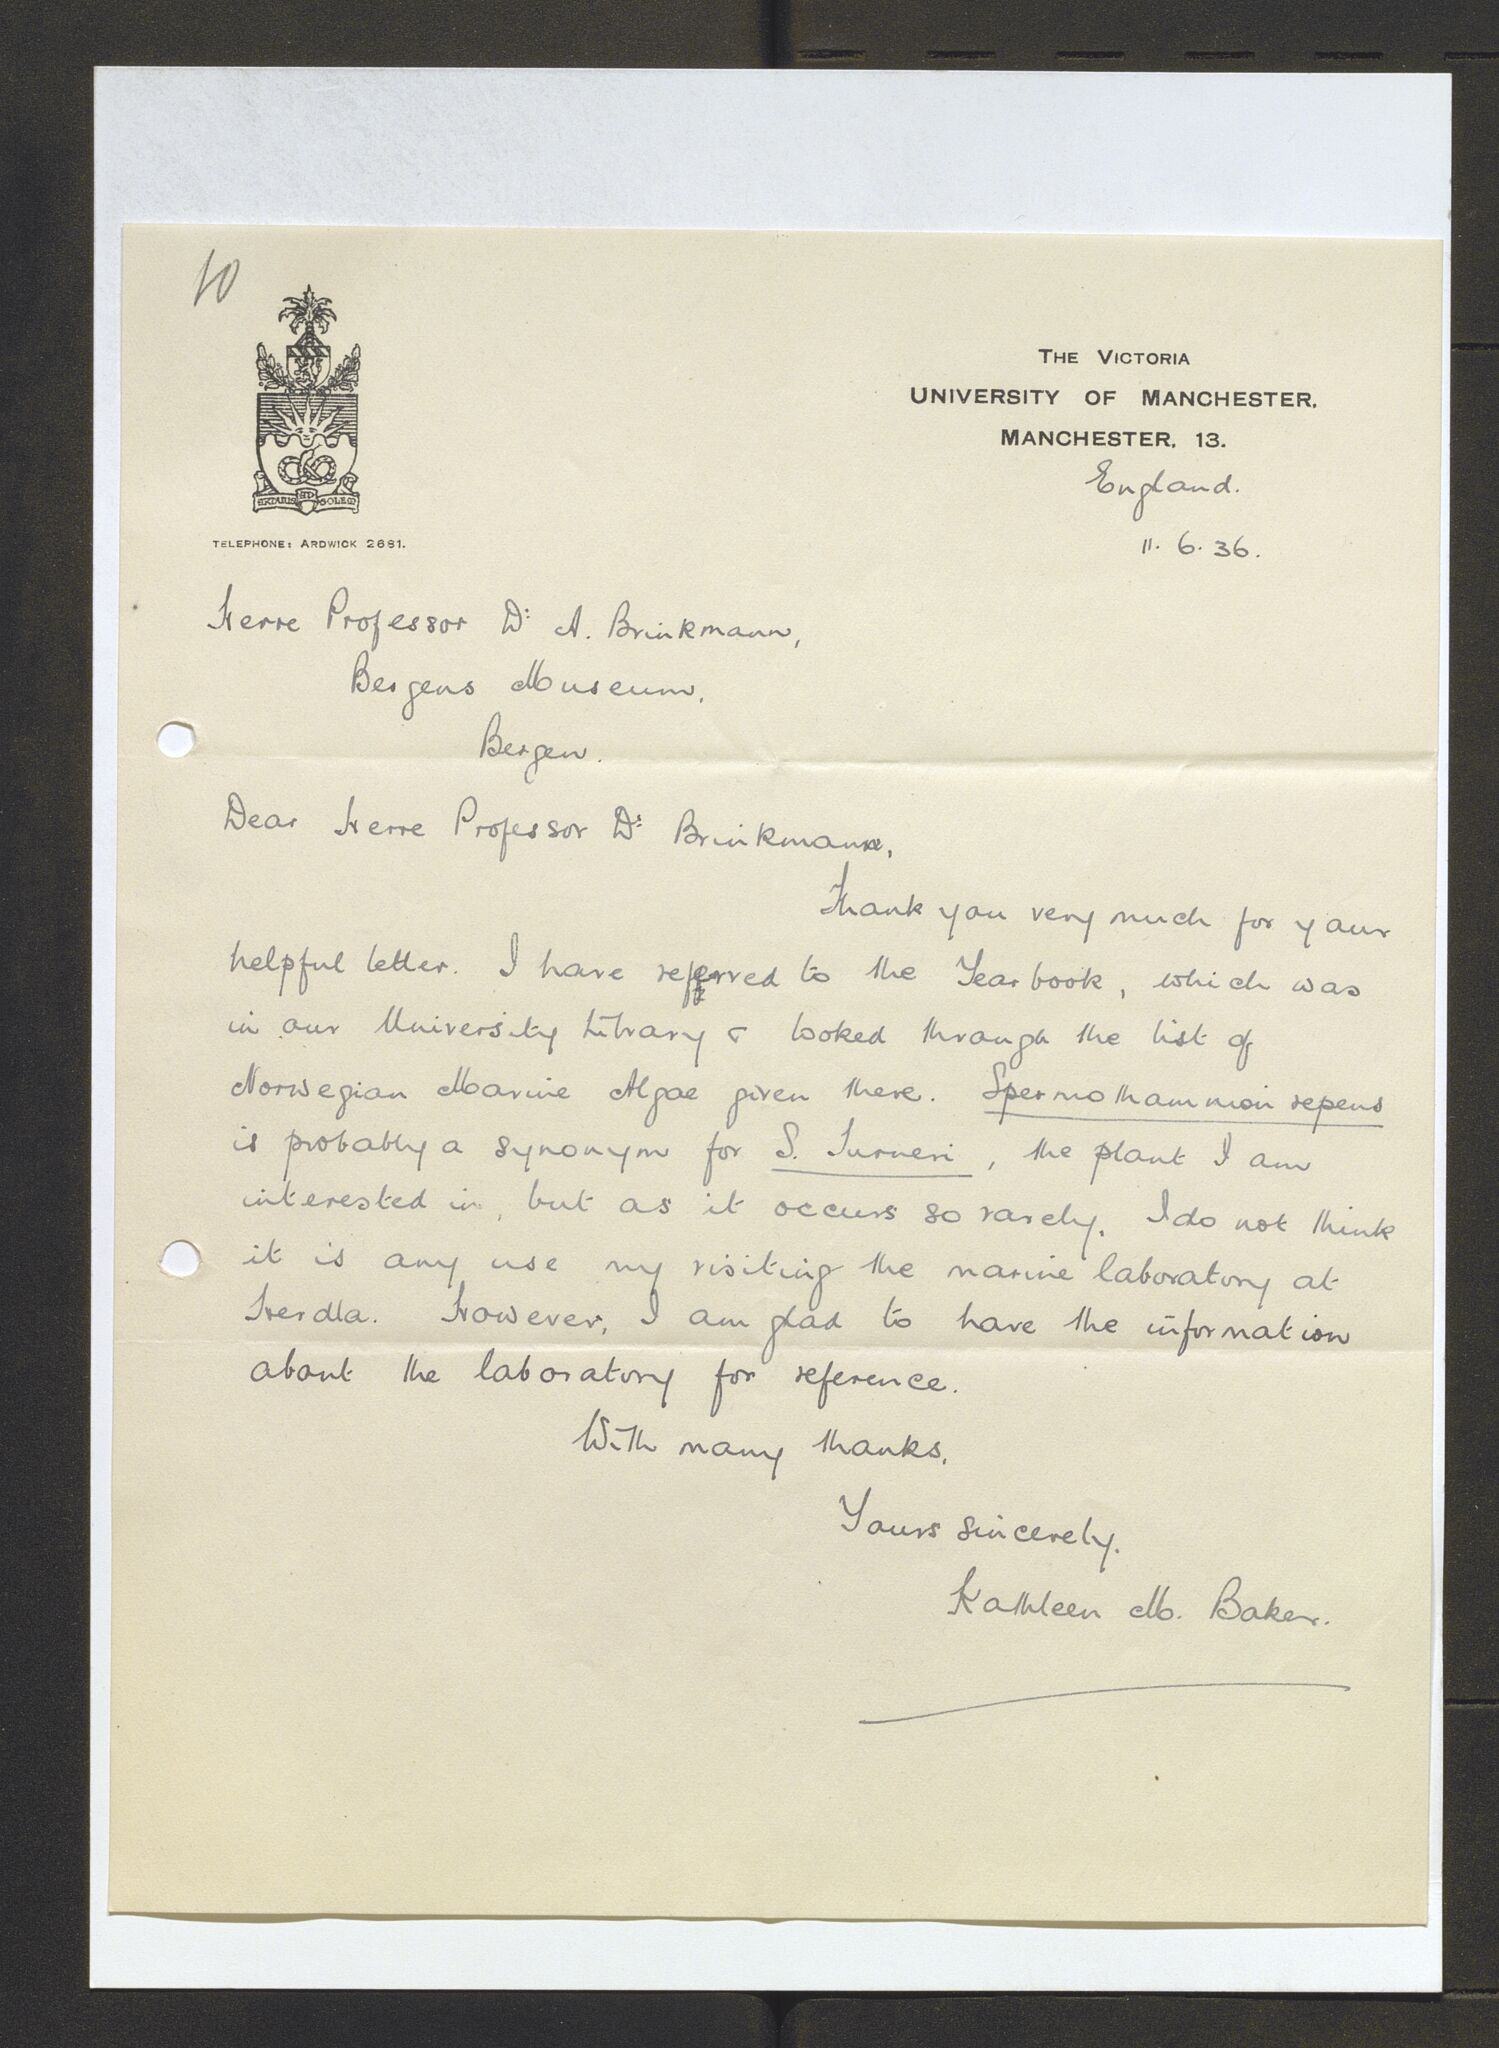 10
THE VICTORIA
UNIVERSITY OF MANCHESTER,
MANCHESTER, 13.
England.
11. 6. 36.
ARDUUS AD SOLEM
TELEPHONE: ARDWICK 2681.
Herre Professor Dr A. Brinkmann,
Bergens Museum,
Bergen.
Dear Herre Professor Dr Brinkmann,
Thank you very much for your
helpful letter. I have referred to the Yearbook, which was
in our University Library & looked through the list of
Norwegian Marine Algae given there. Spermothamnion repens
is probably a synonym for S. Turneri, the plant I am
interested in, but as it occurs so rarely, I do not think
it is any use my visiting the marine laboratory at
Herdla. However, I am glad to have the information
about the laboratory for reference.
With many thanks,
Yours sincerely,
Kathleen M. Baker.